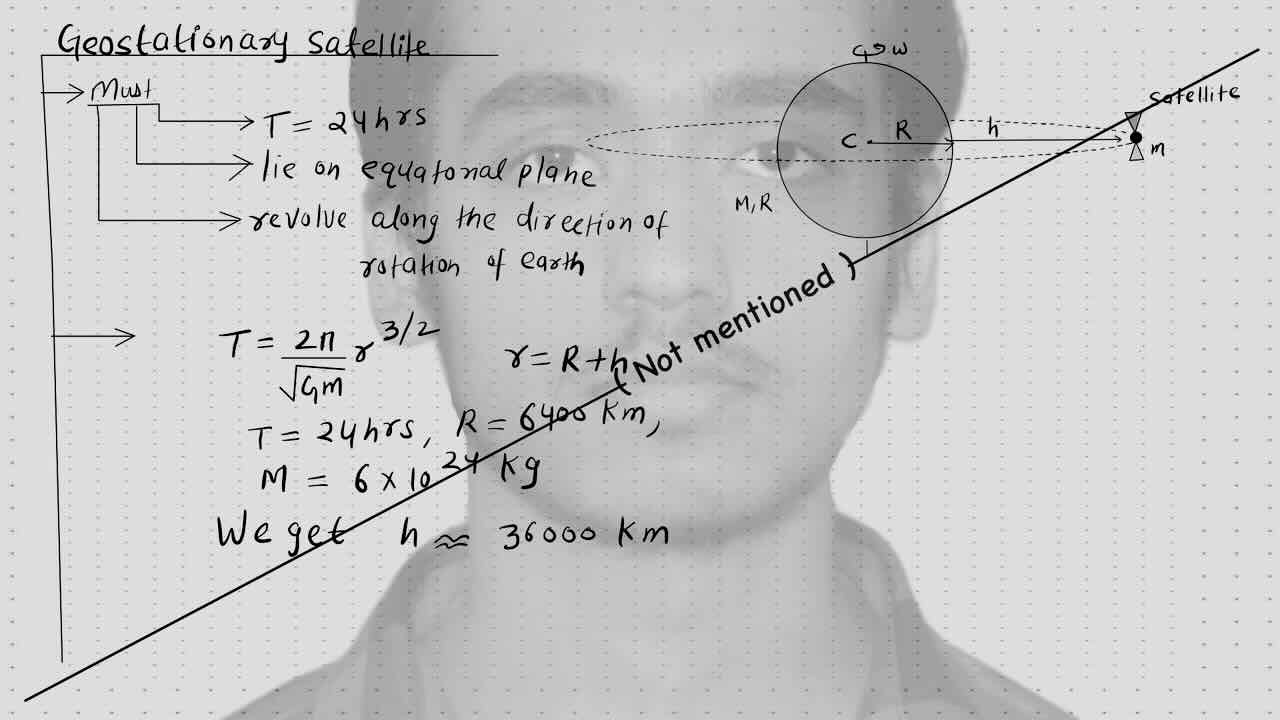 Geostationary satellite
Must
T = 24hrs
lie on equatorial plane
revolve along the direction of
rotation of earth
ω
satellite
C R h
m
M, R
T = 2π/√Gm r^3/2
r = R + h
(Not mentioned)
T = 24hrs, R = 6400 Km,
M = 6 × 10^24 kg
We get h ≈ 36000 Km